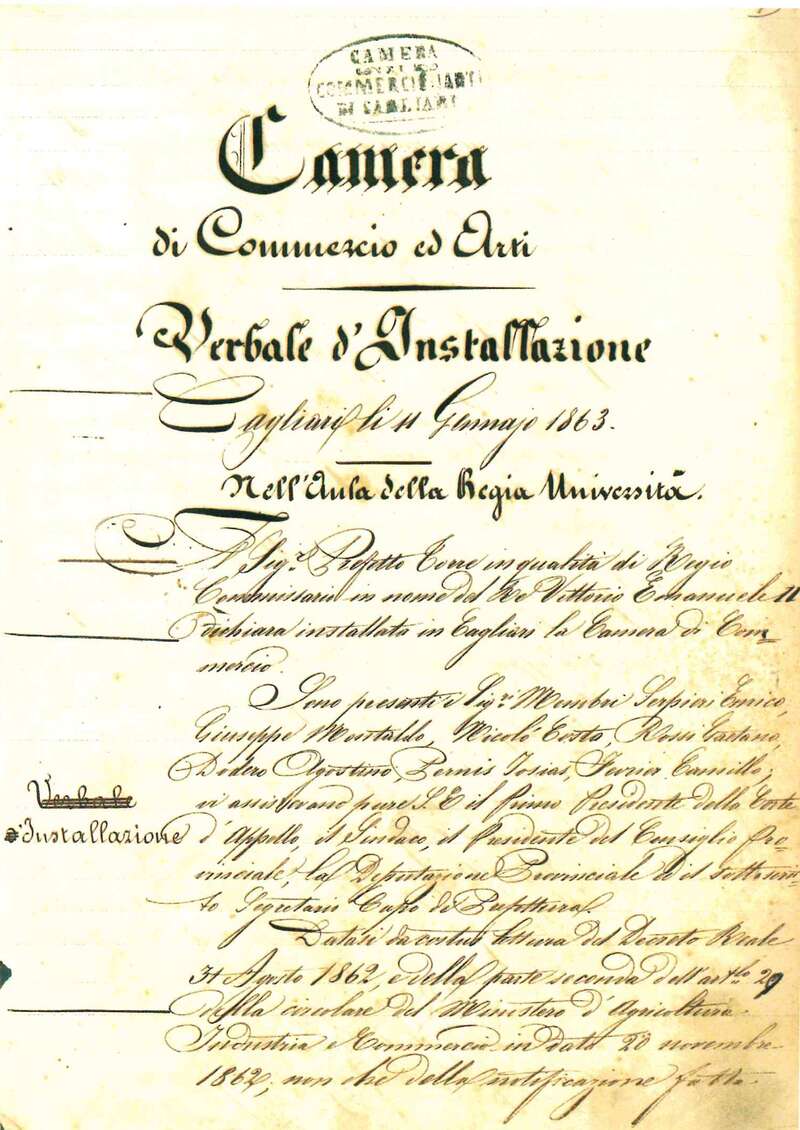 CAMERA
DI
COMMERCIO ED ARTI
DI CAGLIARI
Camera
di Commercio ed Arti
Verbale d'Installazione
Cagliari li 11 Gennajo 1863.
Nell'Aula della Regia Università.
Il Sigr. Prefetto Torre in qualità di Regio
Commissario in nome del Re Vittorio Emanuele II
dichiara installata in Cagliari la Camera di Com=
mercio.
Sono presenti i Sigri. Membri Serpieri Enrico,
Giuseppe Montaldo, Nicolò Costa, Rossi Gaetano,
Dodero Agostino, Pernis Josias, Fevrier Camillo;
vi assistevano pure S. E. il Primo Presidente della Corte
d'Appello, il Sindaco, il Presidente del Consiglio Pro=
vinciale, la Deputazione Provinciale ed il sottoscrit=
to Segretario Capo di Prefettura.
Verbale
d'Installazione
Datasi da costui lettura del Decreto Reale
31 Agosto 1862, e della parte seconda dell'artlo. 29
della circolare del Ministero d'Agricoltura
Industria e Commercio in data 20 novembre
1862, non che della notificazione fatta